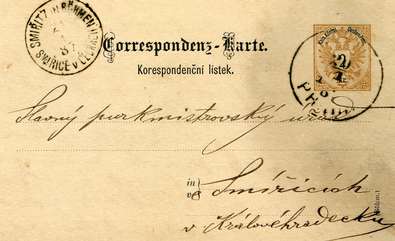 SMIŘITZ IN BÖHMEN
SMIŘICE V ČECH
Correspondenz-Karte.
Korespondenční lístek.
Slavný purkmistrovský úřad
in
v
Smiřicích
v Královéhradecku